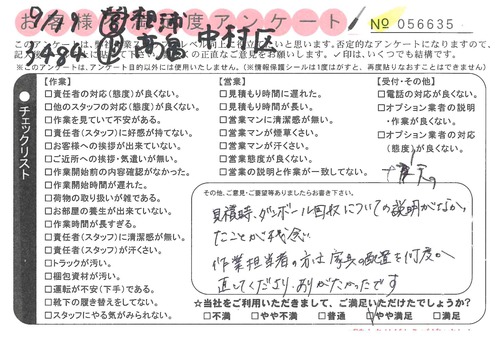 お客様満足度アンケート
9/19
中村区
№ 056635
3484
このアンケートは、
否定的なアンケートになりますので、
正直なご意見をお願いします。✓印は、いくつでも結構です。
※このアンケートは、アンケート目的以外には使用いたしません。(※情報保護シールは1度はがすと、再度貼りなおすことはできません)
チェックリスト
【作業】
□責任者の対応(態度)が良くない。
□他のスタッフの対応(態度)が良くない。
□作業を見ていて不安がある。
□責任者(スタッフ)に好感が持てない。
□お客様への挨拶が出来ていない。
□ご近所への挨拶・気遣いが無い。
□作業開始前の内容確認がなかった。
□作業開始時間が遅れた。
□荷物の取り扱いが雑である。
□お部屋の養生が出来ていない。
□作業時間が長すぎる。
□責任者(スタッフ)に清潔感が無い。
□責任者(スタッフ)が汗くさい。
□トラックが汚い。
□梱包資材が汚い。
□運転が不安(下手)である。
□靴下の履き替えをしてない。
□スタッフにやる気がみられない。
【営業】
□見積もり時間に遅れた。
□見積もり時間が長い。
□営業マンに清潔感が無い。
□営業マンが煙草くさい。
□営業マンが汗くさい。
□営業態度が良くない。
□営業の説明と作業が一致してない。
【受付・その他】
□電話の対応が良くない。
□オプション業者の説明
・作業が良くない。
□オプション業者の対応
(態度)が良くない。
その他、ご意見・ご要望等ありましたらお書き下さい。
見積時、ダンボール回収についての説明がなかっ
たことが残念。
作業担当者の方は家具の配置を何度か
直してくださり、ありがたかったです
☆当社をご利用いただきまして、ご満足いただけたでしょうか?
□不満 □やや不満 □普通 ☑やや満足 □満足